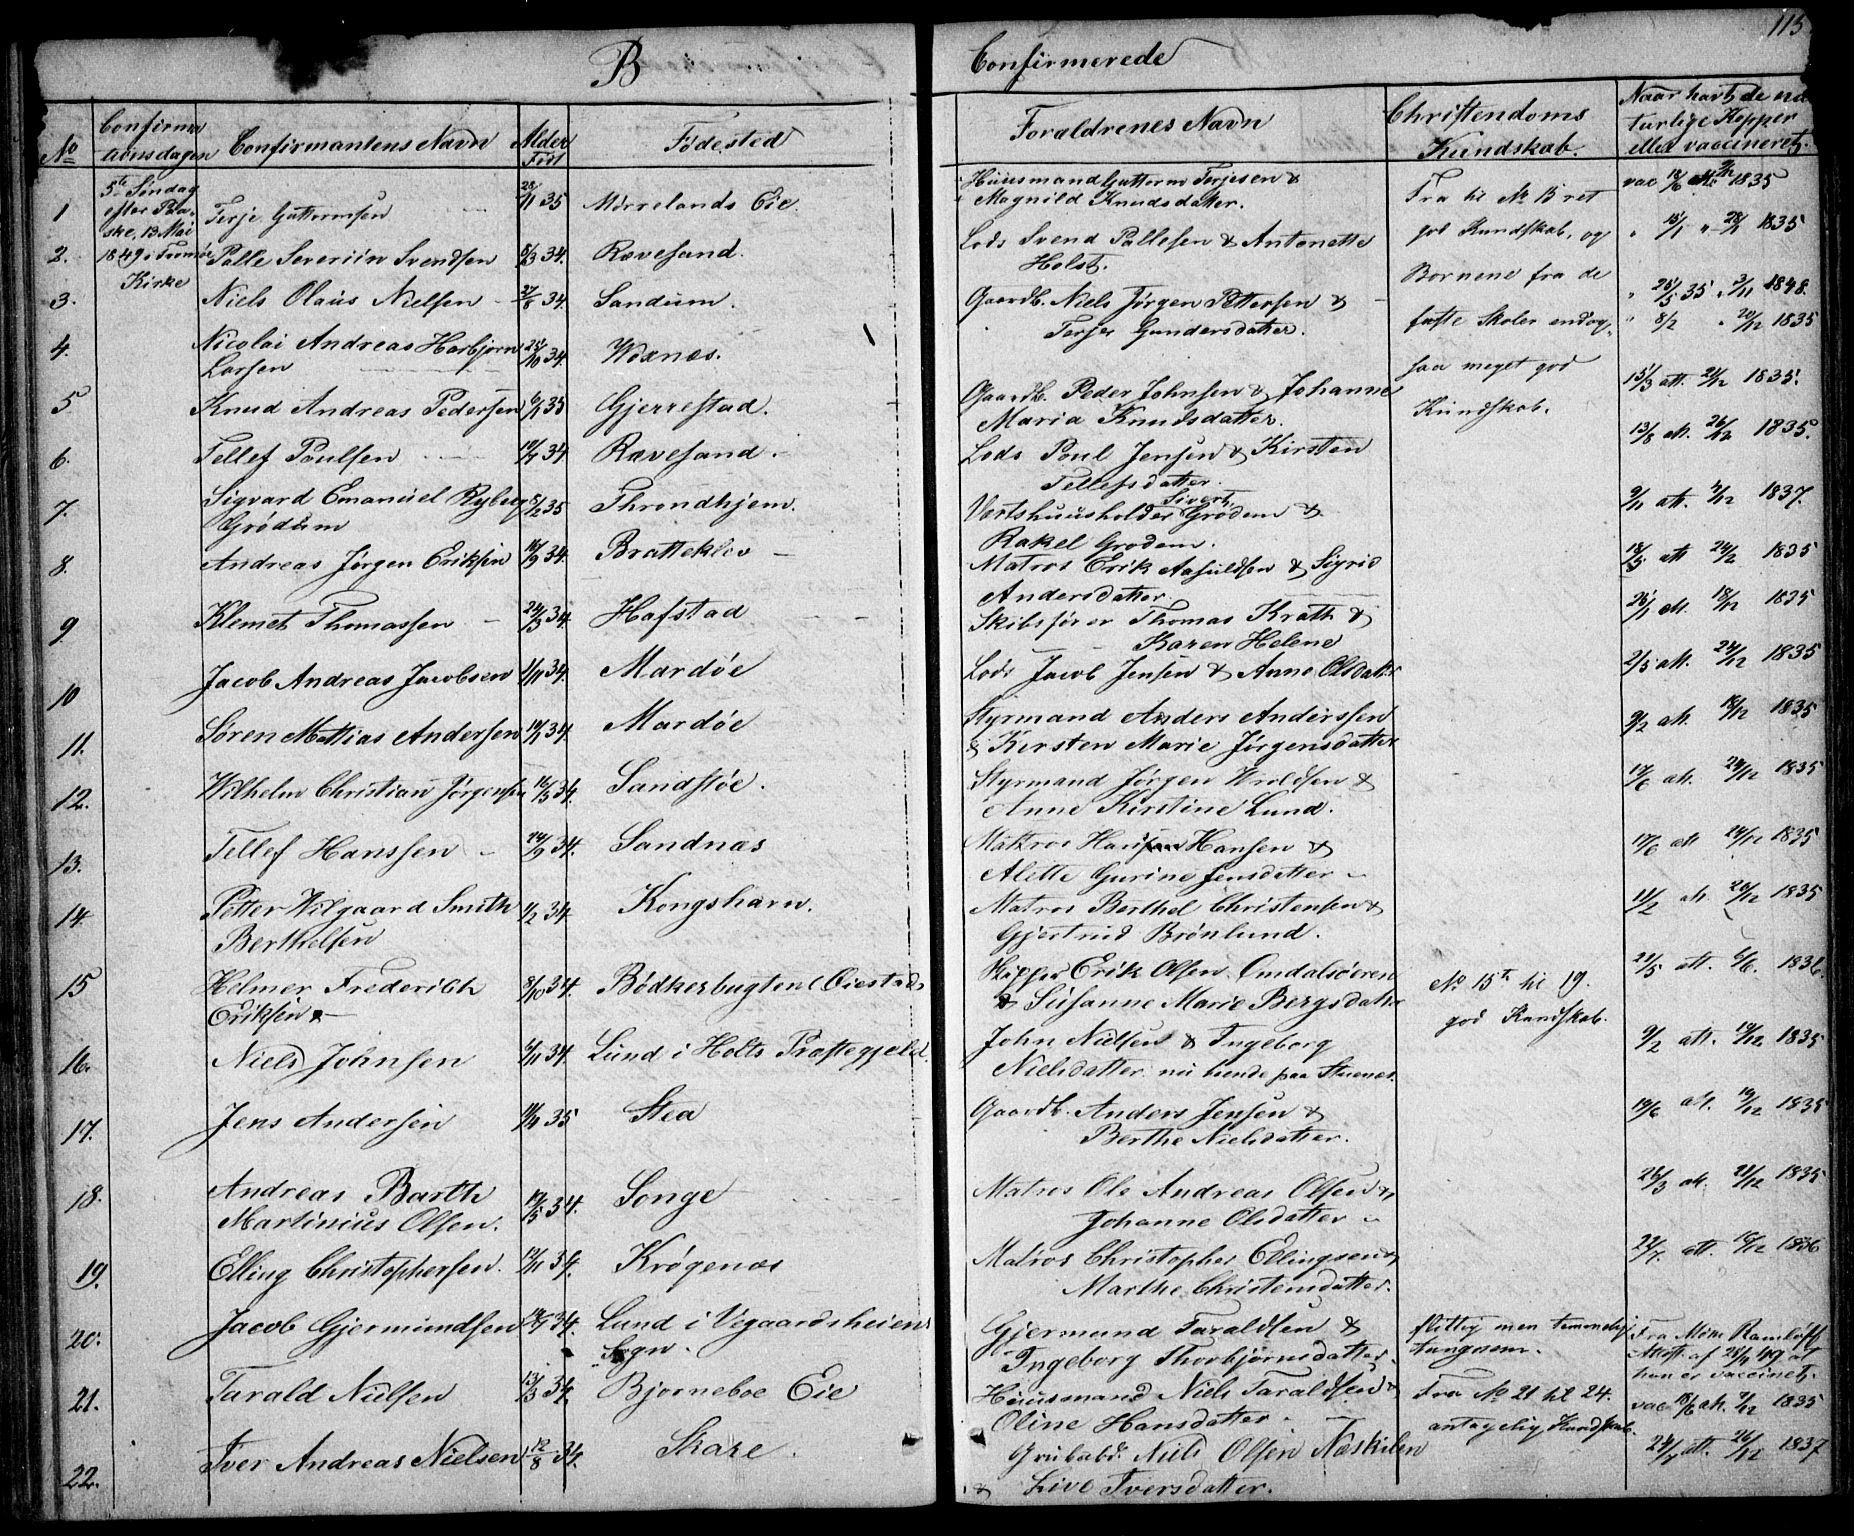 115
B
Confirmerede
No
Confirma
tionsdagen
Confirmantens Navn
Alder
Født
Fødested
Forældrenes Navn
Christendoms
Kundskab.
Naar havt de na
turlige Kopper
eller vaccineret.
1
5te Søndag
efter Paa-
ske, 13 Mai
1849 i Tromøe
Kirke
Terje Guttormsen
28/1 35
Mørrelands Eie.
Huusmand Guttorm Terjesen &
Magnild Knudsdatter.
Fra til No 15 ret
god Kundskab, og
Børnene fra de
faste Skoler endog-
saa meget god
Kundskab.
1835
2.
Palle Severin Svendsen
8/3 34.
Rævesand.
Lods Svend Pallesen & Antonette
Holst.
1835
3.
Niels Olaus Nielsen
27/8 34.
Sandum.
Gaardb. Niels Jørgen Pettersen &
Terjer Gundersdatter.
1848.
4.
Nicolai Andreas Harbjørn
Larsen
25/10 34.
Woxnæs.
" 8/2 " 20/12 1835
5
Knud Andreas Pedersen
6/1 35
Gjerrestad.
Gaardb. Peder Johnsen & Johanne
Maria Knudsdatter.
15/3 att. 21/12 1835.
6.
Tellef Poulsen
34
Rævesand.
Lods Poul Jensen & Kirsten
Tellefsdatter.
13/8 att. 26/12 1835.
7.
Sigvard Emanuel Ryberg
Grødum
8/2 35
Throndhjem.
Vertshuusholder Sivert Grødem &
Rakel Grødem.
9/11 att. 1837.
8.
Andreas Jørgen Eriksen
16/9 34.
Bratteklev
Matros Erik Aasuldsen & Sigrid
Andersdatter
18/5 att 24/12 1835
9
Klemet Thomassen
24/5 34.
Hafstad
Skibsfører Thomas Krath &
Karen Helene
26/1 att. 18/12 1835
10
Jacob Andreas Jacobsen
1/11 34.
Mardøe
Lods Jacob Jensen & Anne Olsdatter
2/5 att. 24/12 1835
11.
Søren Mattias Andersen
34.
Mardøe
Styrmand Anders Anderssen
& Kirsten Marie Jørgensdatter
9/2 att. 18/12 1835
12.
Wilhelm Christian Jørgensen
16/5 34.
Sandstøe.
Styrmand Jørgen Wroldsen &
Anne Kirstine Lund.
17/6 att. 24/12 1835
13.
Tellef Hanssen
24/9 34.
Sandnæs
Matros Hans Hansen &
Alette Gurine Jensdatter
17/6 att 24/12 1835
14.
Petter Wilgaard Smith
Berthelsen
1/2 34.
Kongshavn.
Matros Berthel Christensen &
Gjertrud Brønlund.
11/2 att. 20/12 1835
15
Helmer Frederick
Eriksen
8/10 34.
Bødkerbugten (Øiestad)
Skipper Erik Olsen Omdalsøeren
& Susanne Marie Bergsdatter
No 15te til 19.
god Kundskab.
21/5 att. 6/6. 1836.
16.
Niels Johnsen
6/11 34.
Lund i Holts Præstegjeld.
John Nielsen & Ingeborg
Nielsdatter nu hende paa Stuenes
9/2 att. 19/12 1835
17.
Jens Andersen
35
Stea
Gaardb. Anders Jensen &
Berthe Nielsdatter.
19/6 att. 19/12 1835
18.
Andreas Barth
Martinius Olsen.
19/5 34.
Songe
Matros Ole Andreas Olsen &
Johanne Olsdatter
26/3 att. 21/12 1835
19.
Elling Christophersen.
12/11 34.
Krøgenæs
Matros Christopher Ellingsen &
Marthe Christensdatter.
22/7. att. 19/12 1836
20.
Jacob Gjermundsen
34.
Lund i Vegaardsheiens
Sogn.
Gjermund Taraldsen &
Ingeborg Thorbjørnsdatter.
flittig men temmelig
tungnem.
Fra Mdm Ramløff
Attest af 28/4 49 at
han er vaccinet.
21.
Tarald Nielsen
13/3 34.
Bjørneboe Eie
Huusmand Niels Taraldsen &
Oline Hansdatter
Fra No 21 til 24.
antagelig Kundskab.
vac 18/6 att. 1835
22.
Iver Andreas Nielsen
12/8 34.
Skare.
Grubeb. Niels Olsen Næskilen
& Live Iversdatter.
24/7 att. 26/12 1837